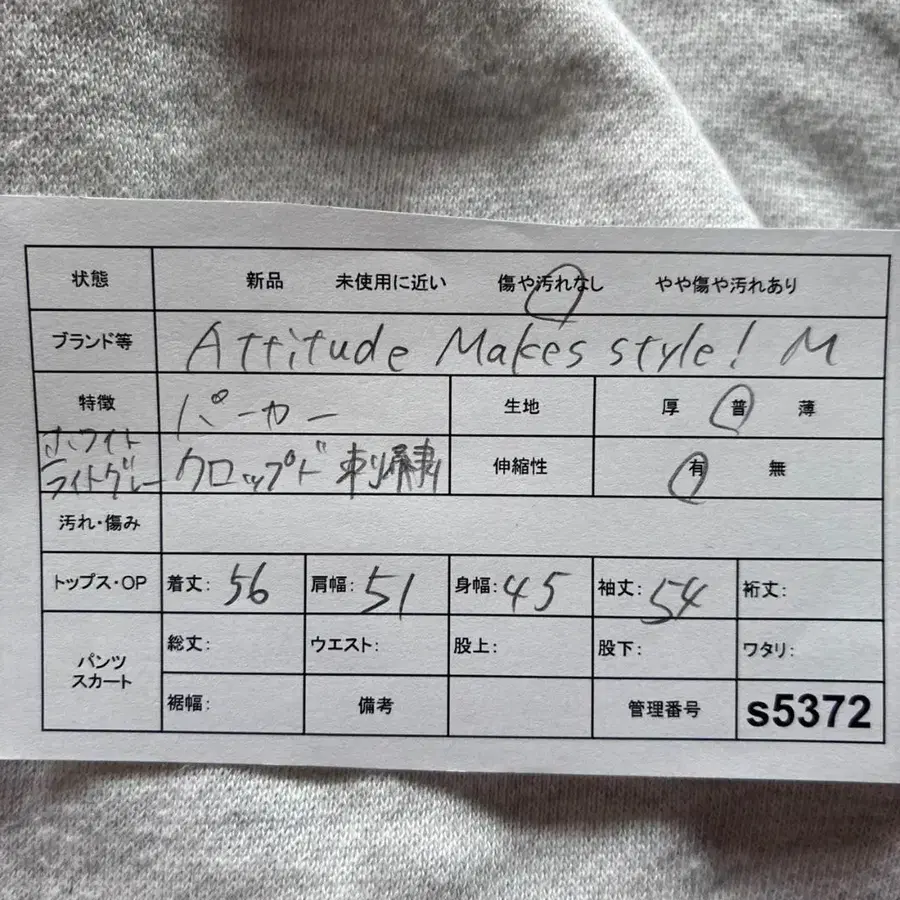 状態 新品 未使用に近い 傷や汚れなし やや傷や汚れあり
ブランド等 Attitude Makes style! M
特徴 パーカー 生地 厚 普 薄
ホワイト
ライトグレー クロップド 刺繍 伸縮性 有 無
汚れ・傷み
トップス・OP 着丈: 56 肩幅: 51 身幅: 45 袖丈: 54 裄丈:
パンツ スカート 総丈: ウエスト: 股上: 股下: ワタリ:
裾幅: 備考 管理番号 s5372